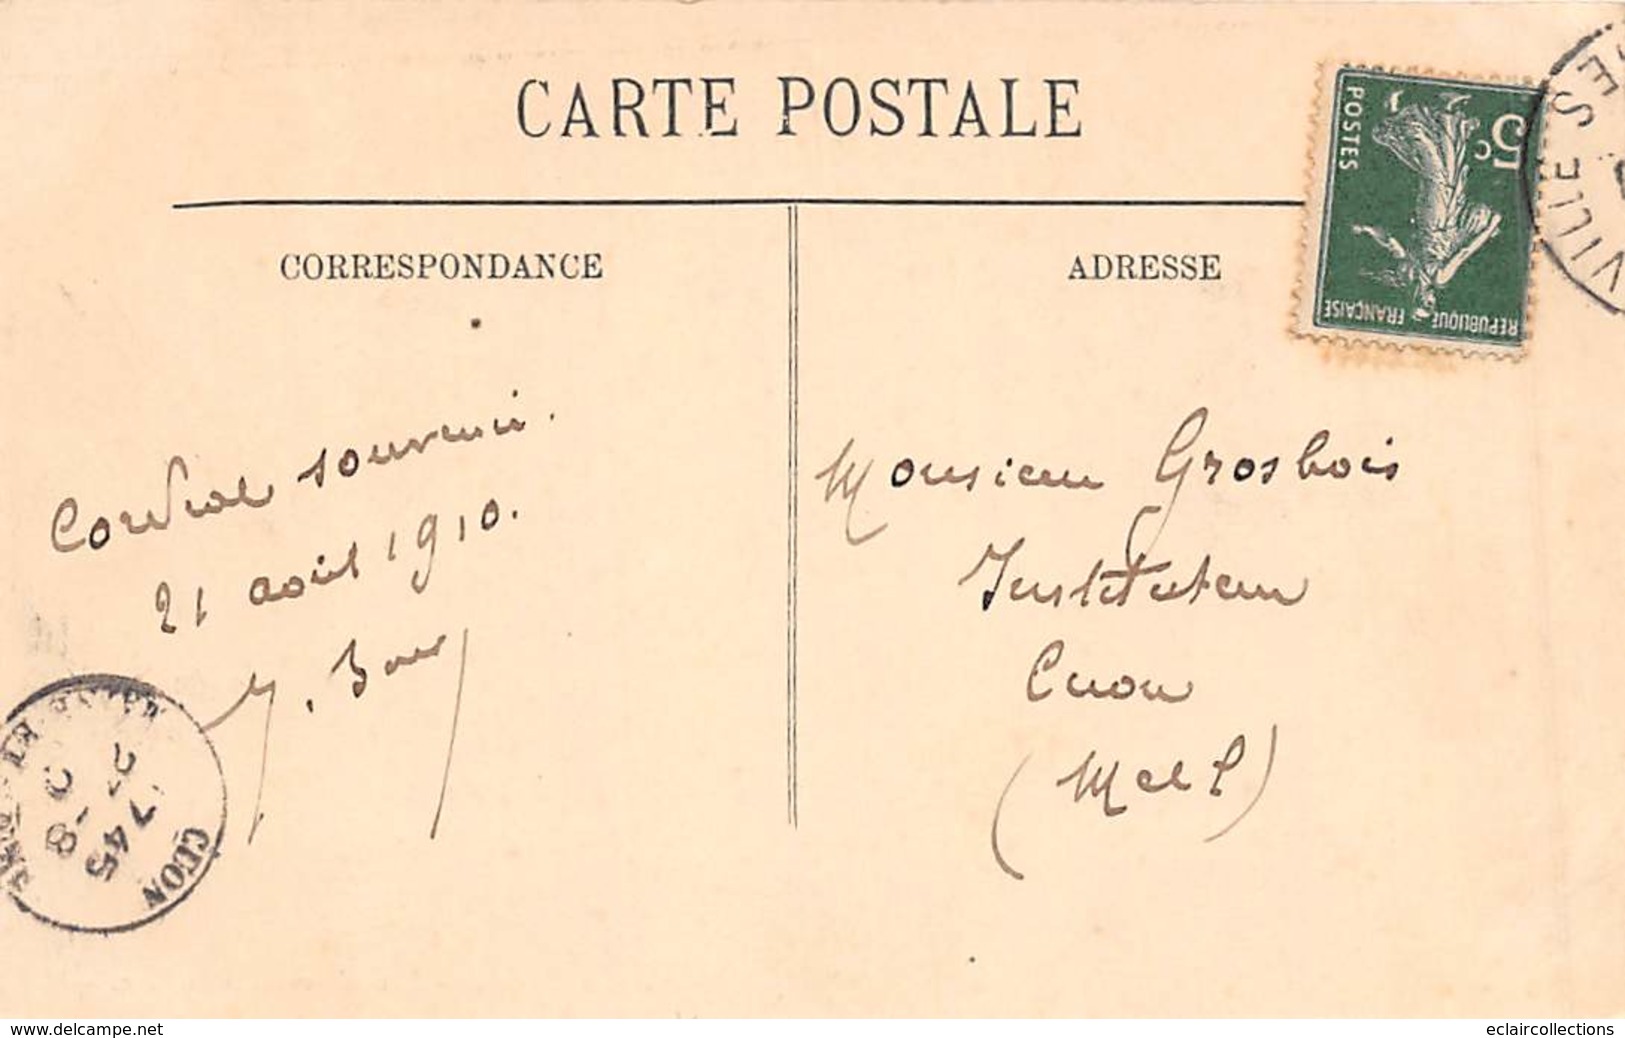 CARTE POSTALE
CORRESPONDANCE
ADRESSE
5c
POSTES
REPUBLIQUE FRANÇAISE
Cordial souvenir.
21 août 1910.
Monsieur Grosbois
Instituteur
Cuon
(M et L)
CUON
7 45
www.delcampe.net
eclaircollections